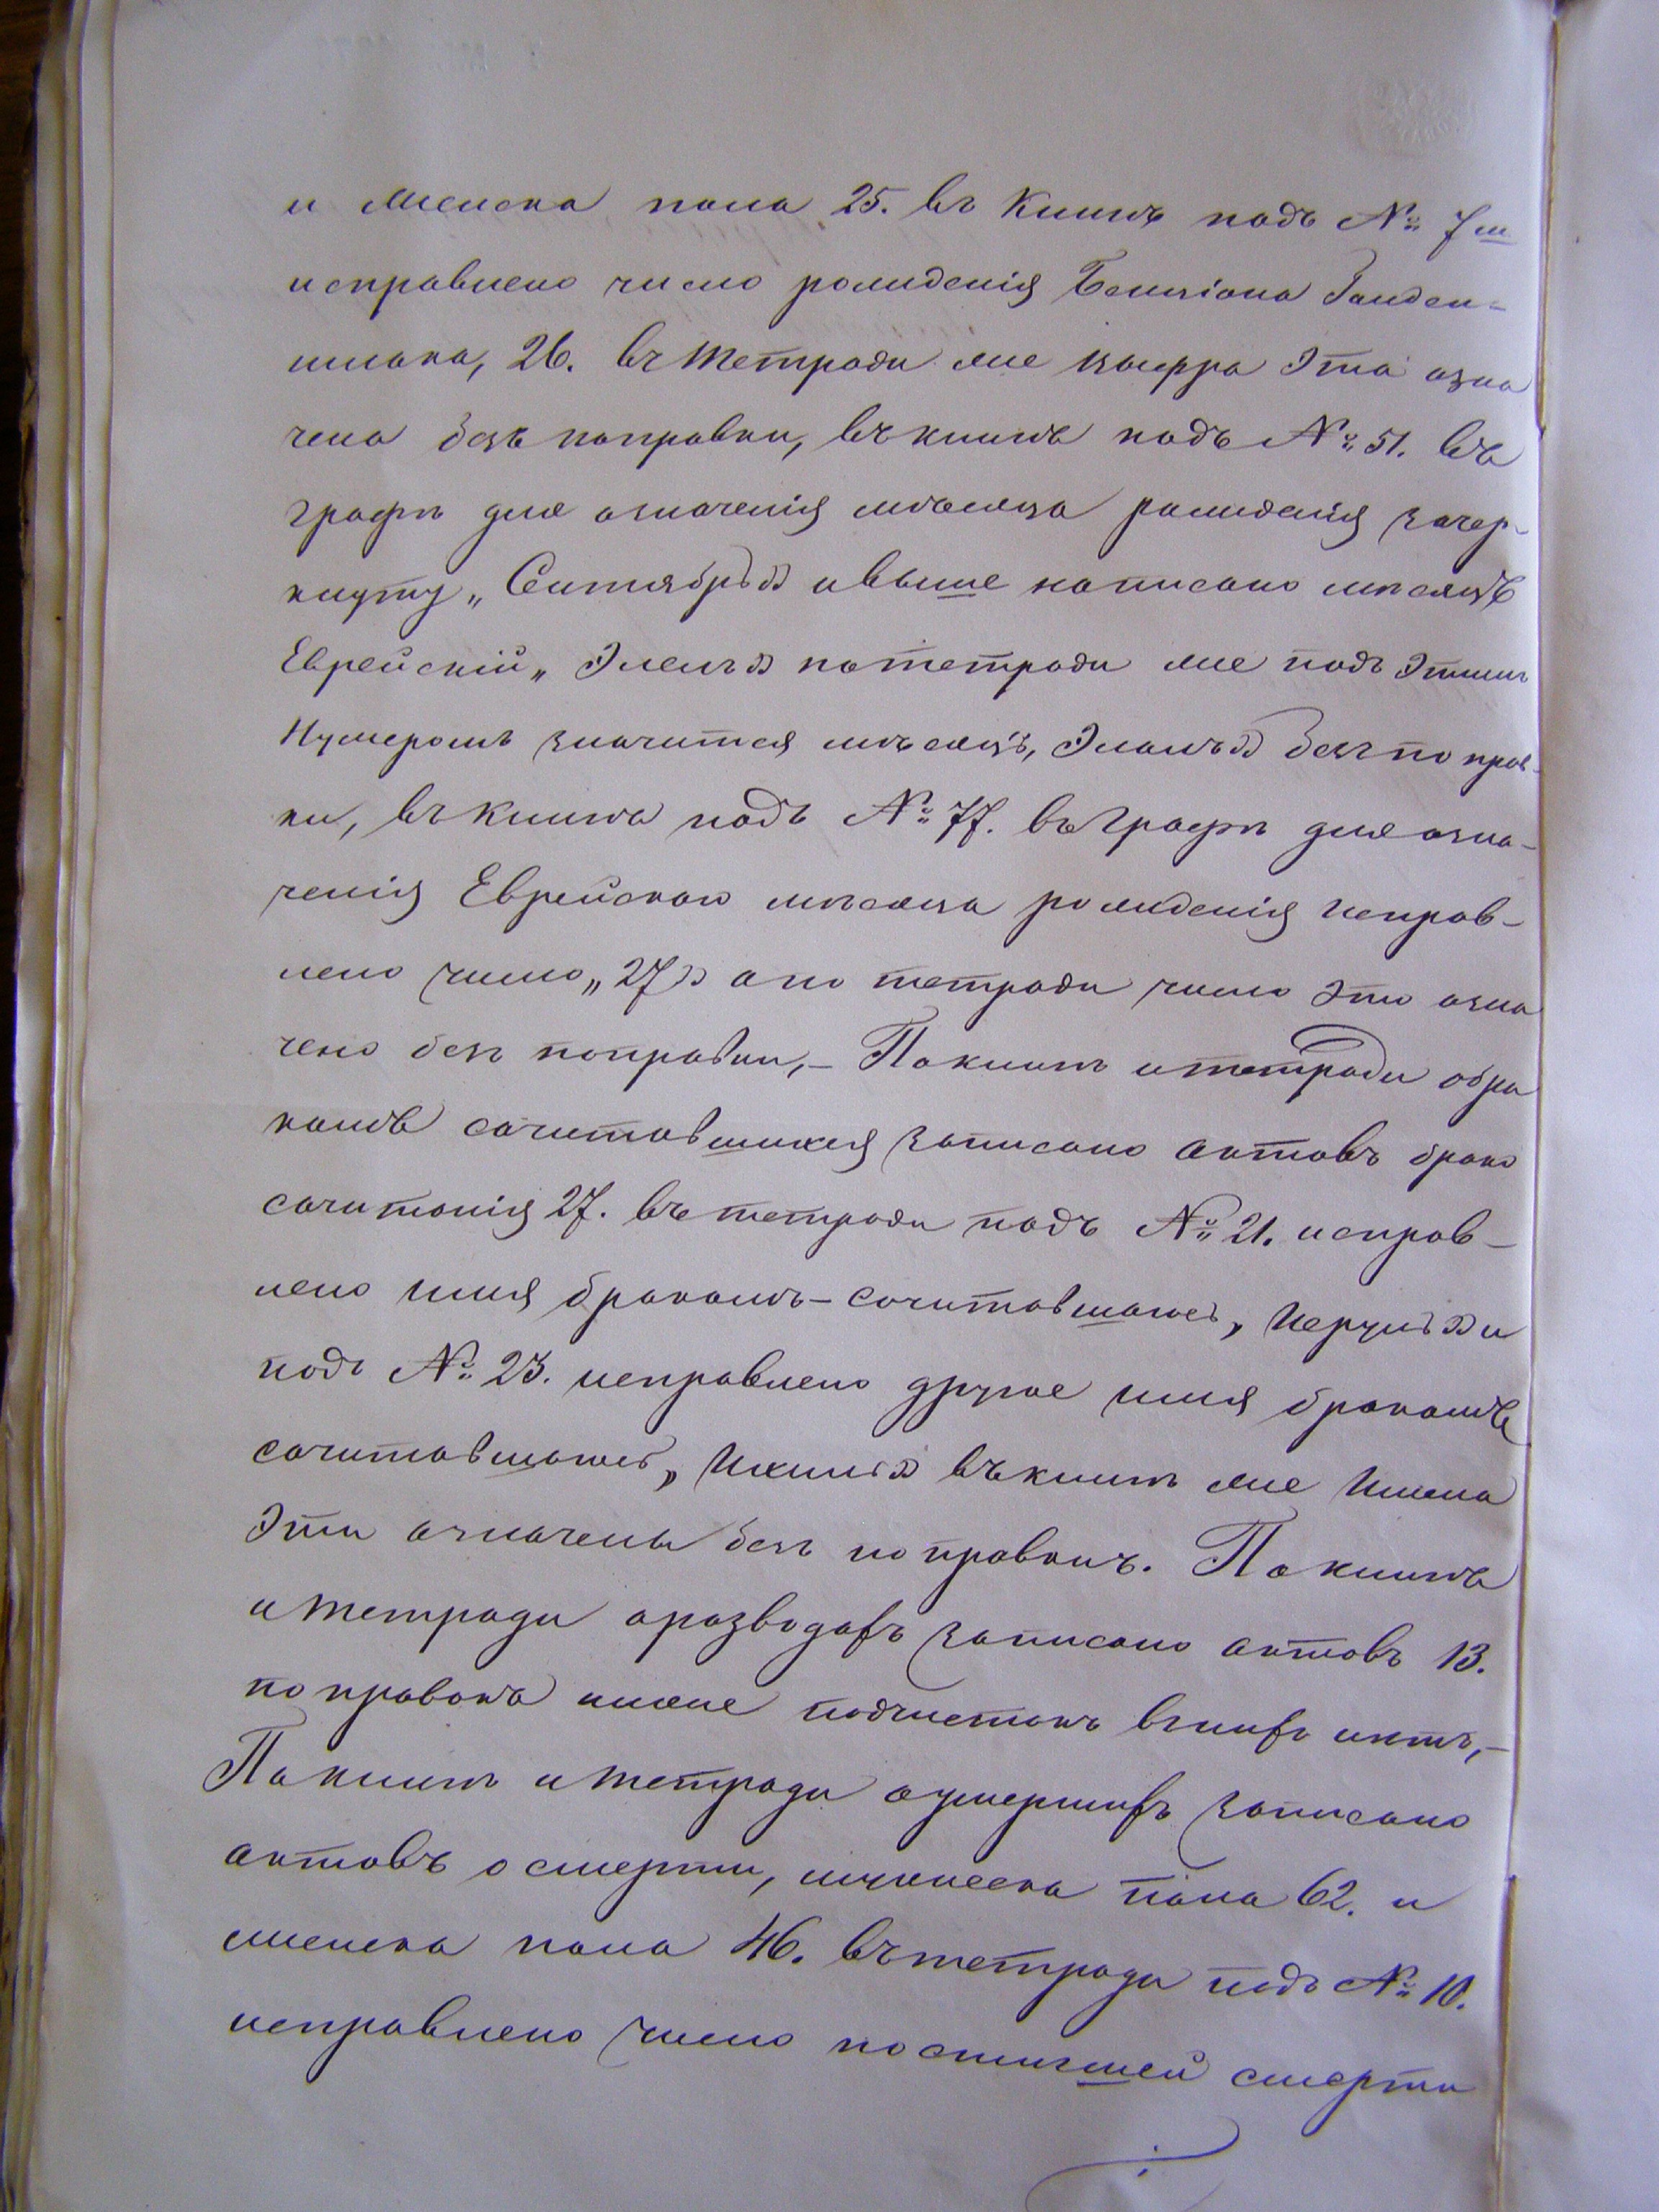 и женска пола 25. въ книгѣ подъ № 7м
исправлено число рожденія Бенціона
шлака, 26. въ тетради же цыфра эта озна
чена безъ поправки, въ книгѣ подъ № 51. въ
графѣ для означенія мѣсяца рожденія зачер-
кнуту „Сентябрь" и выше написано мѣсяцъ
Еврейскій „Элелъ" по тетради же подъ этимъ
Нумеромъ значится мѣсяцъ „Элелъ" безъ поправ-
ки, въ книгѣ подъ № 77. въ графѣ для озна-
ченія Еврейскаго мѣсяца рожденія исправ-
лено число „27" а по тетради число это озна
чено безъ поправки, – По книгѣ и тетради о бра
комъ сочитавшихся записано актовъ брако
сочитанія 27. въ тетради подъ № 21. исправ-
лено имя бракомъ-сочитавшагося и
подъ № 23. исправлено другое имя бракомъ
сочитавшагося „Ихиль" въ книгѣ же имена
эти означены безъ поправикъ. По книгѣ
и тетради о разводахъ записано актовъ 13.
поправокъ ниже подчистокъ въ нихъ нѣтъ, –
По книгѣ и тетради о умершихъ записано
актовъ о смерти, мужеска пола 62. и
женска пола 46. въ тетради подъ № 10.
исправлено число постигшей смерти